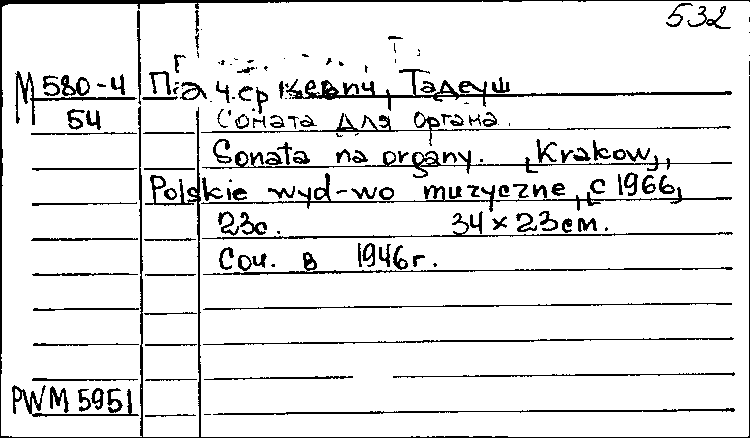 532
М 580-4 Пацеркевич, Тадеуш
54 Соната для органа.
Sonata na organy. [Krakow],
Polskie wyd-wo muzyczne, [c 1966]
23с. 34 × 23 см.
Соч. в 1946г.
PWM 5951